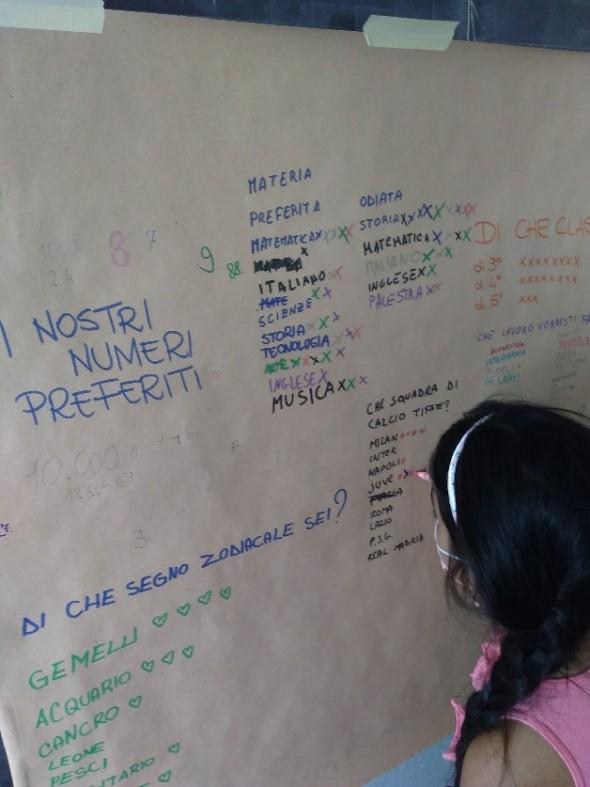 8 7
9 88
I NOSTRI
NUMERI
PREFERITI
10.000.
1234567
37
3
MATERIA
PREFERITA
MATEMATICA X X X X X
ITALIANO X X
MATE
SCIENZE X X
STORIA X X X
TECNOLOGIA X X X
ARTE X X X X X
INGLESE X
MUSICA X X X X
ODIATA
STORIA X X X X X X X X X
MATEMATICA X X X X
ITALIANO X X X
INGLESE X X
PALESTRA X X
DI CHE CLAS
di 3° XXXXXXXX
di 4° XXXXXXXX
di 5° XXX
CHE LAVORO VORRESTI FA
CHE SQUADRA DI
CALCIO TIFATE?
MILAN
INTER
NAPOLI
JUVE
ITALIA
ROMA
LAZIO
P.S.G.
REAL MADRID
DI CHE SEGNO ZODIACALE SEI?
GEMELLI ♡ ♡ ♡ ♡
ACQUARIO ♡ ♡ ♡
CANCRO ♡
LEONE
PESCI
ITARIO ♡